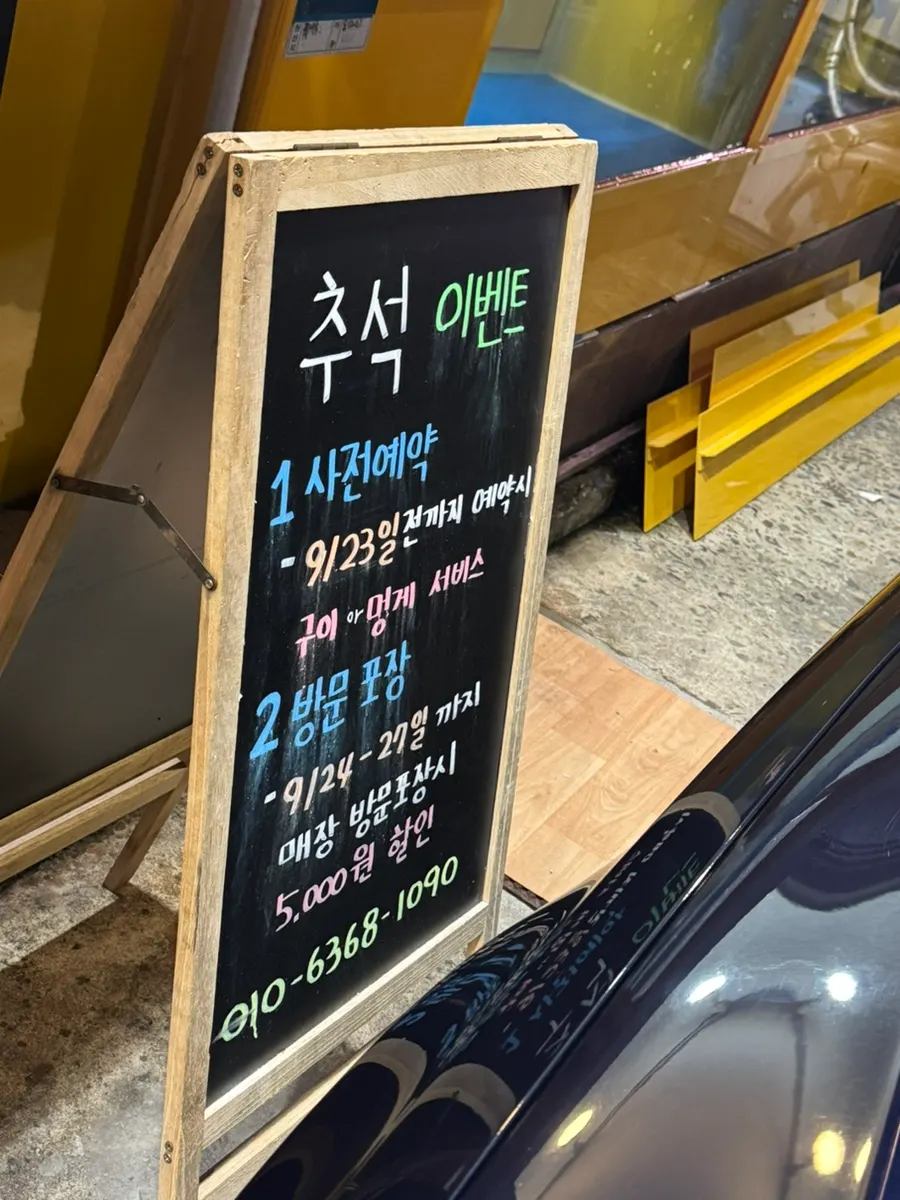 추석 이벤트
1 사전예약
- 9/23일전까지 예약시
구이 or 멍게 서비스
2 방문 포장
- 9/24-27일 까지
매장 방문포장시
5.000원 할인
010-6368-1090